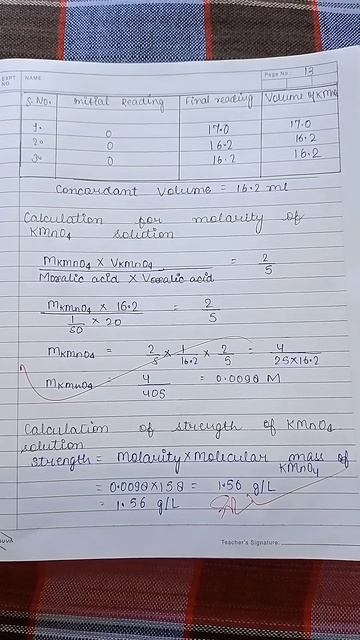 EXPT NO
NAME:
Page No.: 13
S.No. Initial Reading Final reading Volume of KMnO4
1. 0 17.0 17.0
2. 0 16.2 16.2
3. 0 16.2 16.2
Concordant Volume = 16.2 ml
Calculation for molarity of
KMnO4 solution
MKMnO4 × VKMnO4 / Moxalic acid × Voxalic acid = 2/5
MKMnO4 × 16.2 / 1/50 × 20 = 2/5
MKMnO4 = 2/5 × 1/16.2 × 2/5 = 4/25×16.2
MKMnO4 = 4/405 = 0.0098 M
Calculation of strength of KMnO4
solution
Strength = Molarity × Molecular mass of
KMnO4
= 0.0098 × 158 = 1.56 g/L
= 1.56 g/L
Teacher's Signature: